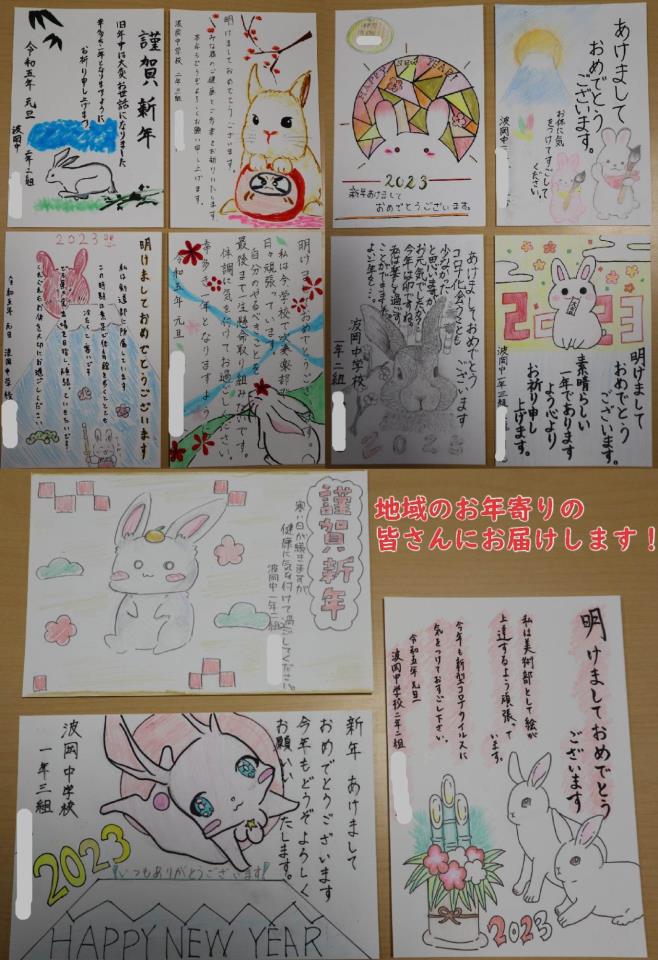 謹賀新年
旧年中は大変お世話になりました
幸多き一年となりますように
お祈り申し上げます。
令和五年 元旦
波岡中 二年二組
明けましておめでとうございます。
みな様のご健康とご多幸をお祈りいたします。
本年もどうぞよろしくお願い申し上げます。
波岡中学校 二年三組
HAPPY NEW YEAR!
2023
新年あけまして
おめでとうございます。
あけまして
おめでとう
ございます。
お体に気
をつけてすごして
ください。
2023
明けましておめでとうございます
私は剣道部に所属しています
くれぐれもお体を大切にお過ごしください。
令和五年 元旦 波岡中学校
明けましておめでとうござい
私は今、学校で吹奏楽部で
日々頑張っています。
自分のやるべきことを
最後まで一生懸命取り組みたいです。
体調に気を付けてお過ごしください。
幸多き一年となりますよう
令和五年 元旦
あけましておめでとう
ございます
コロナ禍で会うことも
少なかった
と思いますが
お元気でしたか?
今年は卯年ですね。
私は楽しく過ごす
ことができました。
よい年を。
波岡中学校
一年二組
2023
2023
明けまして
おめでとう
ございます。
素晴らしい
一年であります
よう心より
お祈り申し
上げます。
波岡中一年三組
謹賀新年
寒い日が続きますが
健康に気を付けて過ごしてください。
波岡中一年二組
地域のお年寄りの
皆さんにお届けします!
新年 あけまして
おめでとうございます
今年もどうぞよろしく
お願いいたします。
波岡中学校
一年三組
2023
いつもありがとうございます!
HAPPY NEW YEAR
明けましておめでとう
ございます
私は美術部として絵が
上達するよう頑張って
います。
今年も新型コロナウイルスに
気をつけておすごし下さい。
令和五年元旦
波岡中学校二年二組
2023